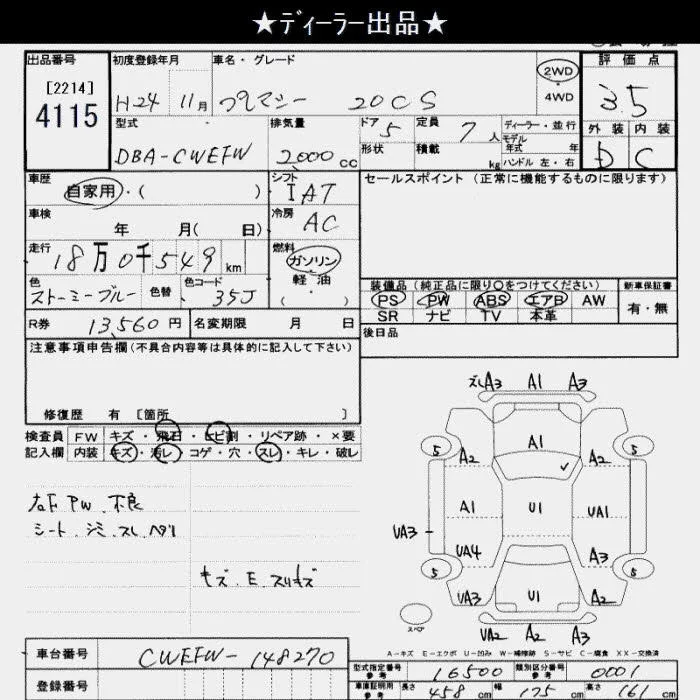 ★ディーラー出品★
出品番号
[2214]
4115
初度登録年月
H24 11月
車名・グレード
プレマシー 20CS
2WD
・
4WD
評価点
3.5
外装 内装
D C
型式
DBA-CWEFW
排気量
2000cc
ドア 5
形状
定員 7人
積載 kg
ディーラー・並行
モデル
年式 年
ハンドル 左・右
車歴
自家用・( )
シフト
IAT
車検
年 月( 日)
冷房
AC
走行
18万0千549km
燃料
ガソリン
軽油
( ・ )
色
ストーミーブルー
色替
色コード
35J
R券 13,560円
名変期限 月 日
セールスポイント(正常に機能するものに限ります)
装備品(純正品に限り○をつけてください)
新車保証書
PS PW ABS エアB AW
有・無
SR ナビ TV 本革
後日品
注意事項申告欄(不具合内容等は具体的に記入して下さい)
修復歴 有 [箇所 ]
検査員 FW キズ・飛石・ヒビ割・リペア跡・×要
記入欄 内装 キズ・汚レ・コゲ・穴・スレ・キレ・破レ
右F PW 不良
シート シミ スレ ヘタリ
キズ E スリキズ
ズレA3 A1 A3
5 A2 A1 A2 5
A1 U1 UA1
UA3
UA4 A3
5 5
UA3 U1 A2
スペア
UA2 A2 A3
A-キズ E-エクボ U-凹み W-補修跡 S-サビ C-腐食 XX-交換済
車台番号 CWEFW-148270
登録番号
型式指定番号
参考
16500
類別区分番号
参考
0001
車庫証明用
参考
長さ 458cm 幅 175cm 高さ 161cm